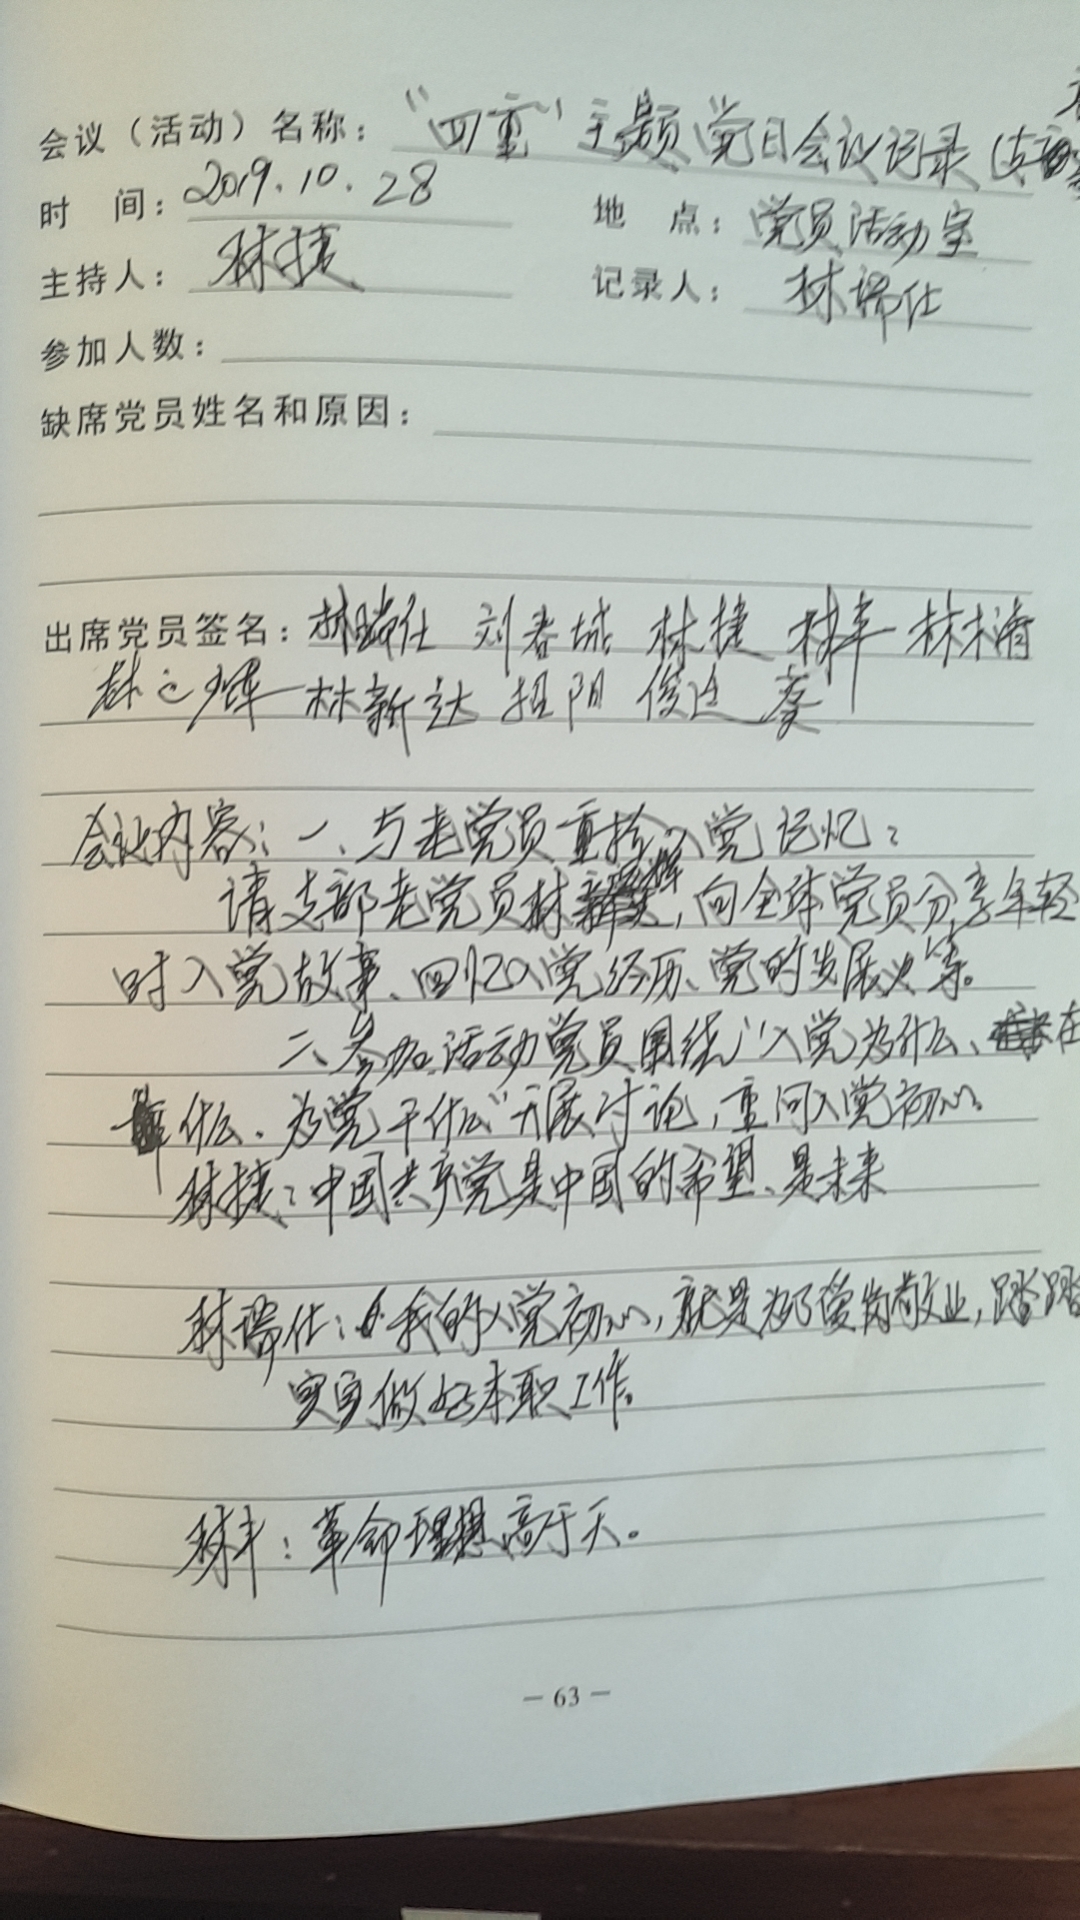 会议（活动）名称：“四重”主题党日会议记录（支
时 间：2019.10.28 地 点：党员活动室
主持人：林捷 记录人：林瑞仕
参加人数：
缺席党员姓名和原因：
出席党员签名：林瑞仕 刘春城 林捷 林丰 林木清
林 辉 林新达
会议内容：一、与老党员重拾入党记忆：
请支部老党员林，向全体党员分享年轻
时入党故事、回忆入党经历、党的发展史等。
二、参加活动党员围绕“入党为什么、在
什么、为党干什么”开展讨论，重问入党初心。
林捷：中国共产党是中国的希望、是未来
林瑞仕：我的入党初心，就是为了爱岗敬业，踏踏
实实做好本职工作。
林丰：革命理想高于天。
— 63 —